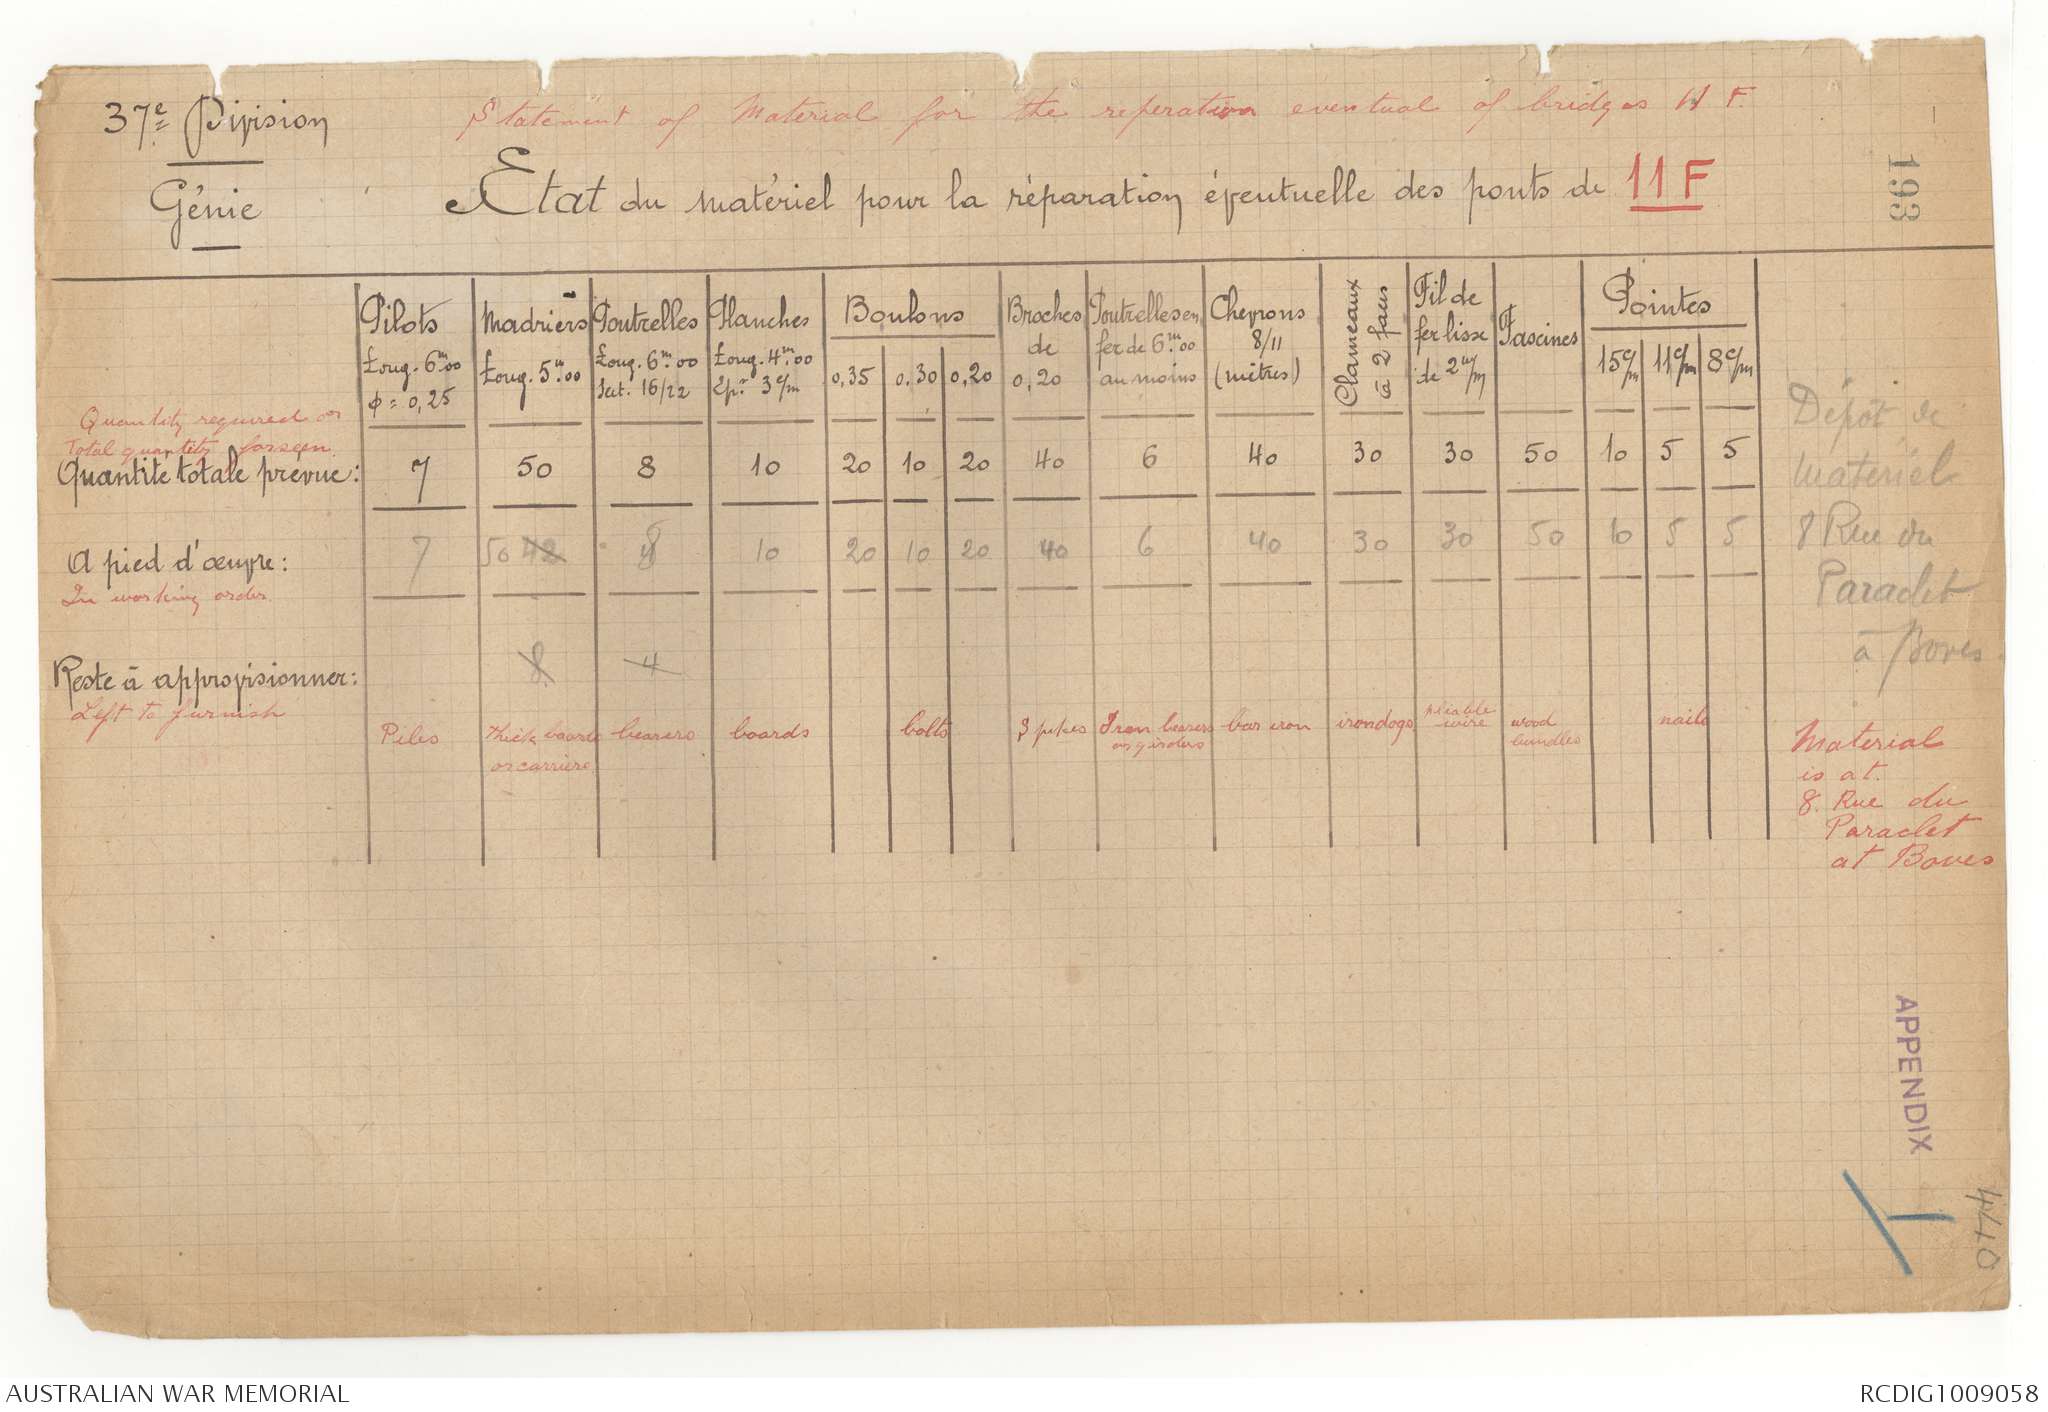 37e Division
Génie
Statement of Material for the reperation eventual of bridges 11 F.
Etat du matériel pour la réparation éventuelle des ponts de 11 F
193
Pilots Long. 6m.00 φ = 0,25
Madriers Long. 5m.00
Poutrelles Long. 6m.00 Sect. 16/22
Planches Long. 4m.00 Epr 3 c/m
Boulons 0,35 0.30 0,20
Broches de 0,20
Poutrelles en fer de 6m.00 au moins
Chevrons 8/11 (mètres)
Clameaux à 2 faces
Fil de fer lisse de 2 m/m
Fascines
Pointes 15 c/m 11 c/m 8 c/m
Quantity required or
Total quantity forseen.
Quantité totale prévue: 7 50 8 10 20 10 20 40 6 40 30 30 50 10 5 5
A pied d'œuvre: 7 50 42 8 10 20 10 20 40 6 40 30 30 50 10 5 5
In working order.
Reste à approvisionner: 8 4
Left to furnish
Piles
thick boards
or carriere
bearers
boards
bolts
Spikes
Iron bearers
or girders
bar iron
irondogs
pliable
wire
wood
bundles
nails
Dépôt de
matériel
8 Rue du
Paraclet
à Boves
Material
is at.
8. Rue du
Paraclet
at Boves
APPENDIX
1
4410
AUSTRALIAN WAR MEMORIAL
RCDIG1009058